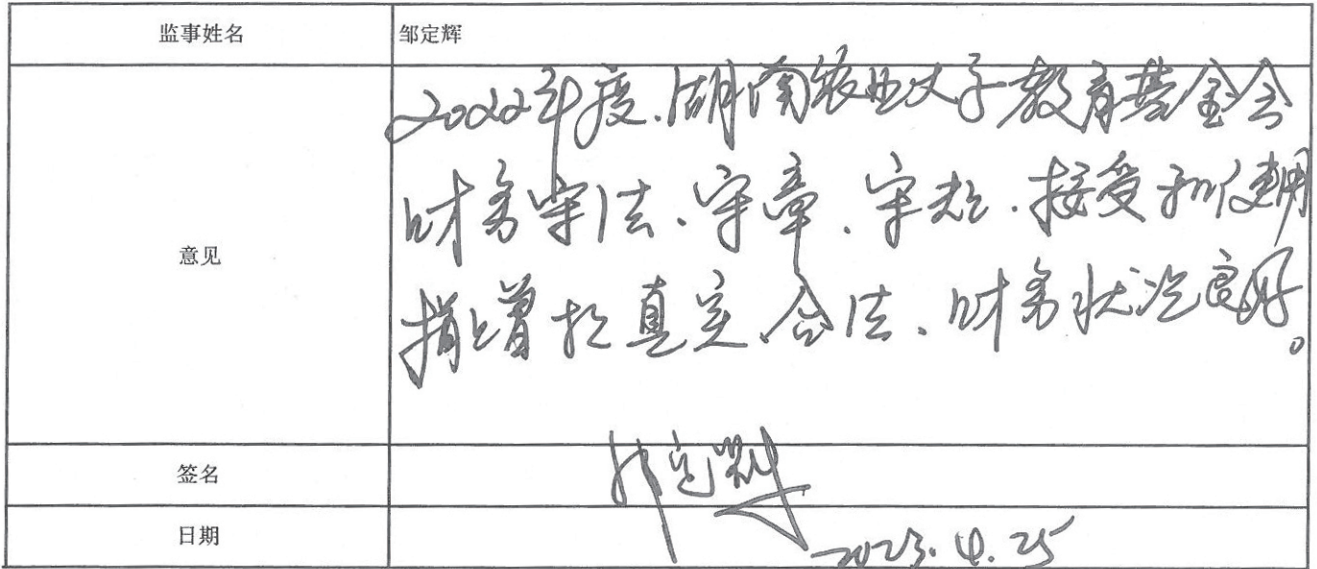 监事姓名
邹定辉
意见
2022年度、湖南农业大学教育基金会
财务守法、守章、守规、接受和使用
捐赠款真实、合法、财务状况良好。
签名
邹定辉
日期
2023.4.25